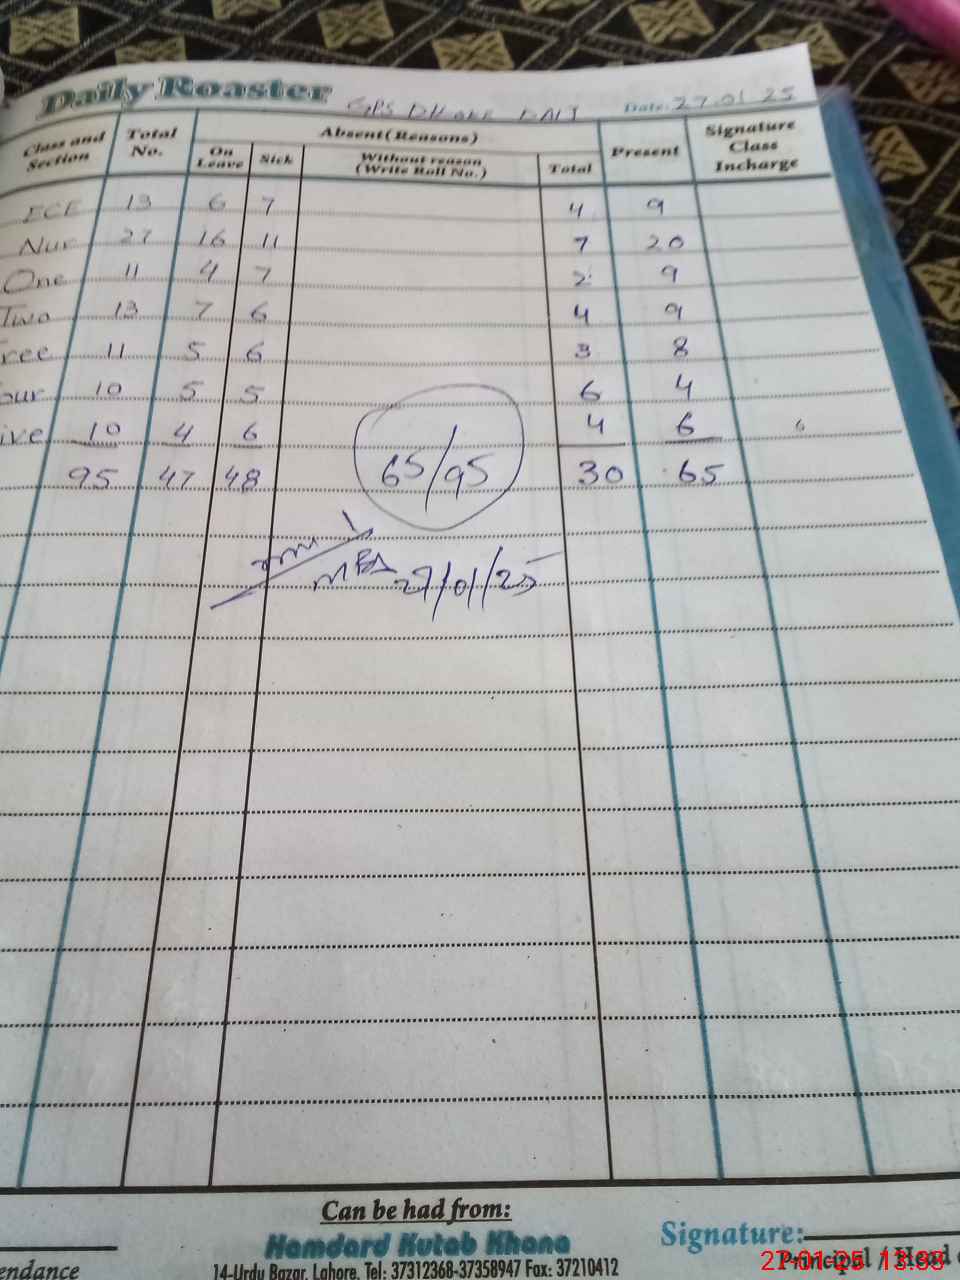 Daily Roaster GPS Date: 27.01.25
Class and Section Total No. Absent (Reasons) Present Signature Class Incharge
On Leave Sick Without reason (Write Roll No.) Total
ECE 13 6 7 4 9
Nur 27 16 11 7 20
One 11 4 7 2 9
Two 13 7 6 4 9
ree 11 5 6 3 8
our 10 5 5 6 4
ive 10 4 6 4 6
95 47 48 65/95 30 65
27/01/25
Can be had from:
Hamdard Kutab Khana
14-Urdu Bazar, Lahore, Tel: 37312368-37358947 Fax: 37210412
endance
Signature:
Principal / Head